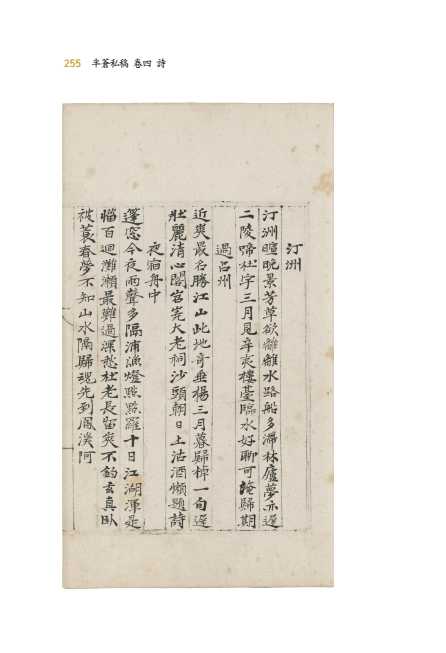 255 半蒼私稿 卷四 詩
汀洲
汀洲暄晩景芳草欲離離水路船多滯林廬夢亦遲
二陵啼杜宇三月見辛夷樓臺臨水好聊可淹歸期
過呂州
近爽最名勝江山此地奇垂楊三月暮歸棹一旬遲
壯麗淸心閣宮寃大老祠沙頭朝日上沽酒懶題詩
夜宿舟中
蓬窓今夜雨聲多隔浦漁燈點點羅十日江湖渾是
惱百迴灘瀨最難過深愁杜老長留爽不釣玄眞臥
被蓑春夢不知山水隔歸魂先到鳳溪阿